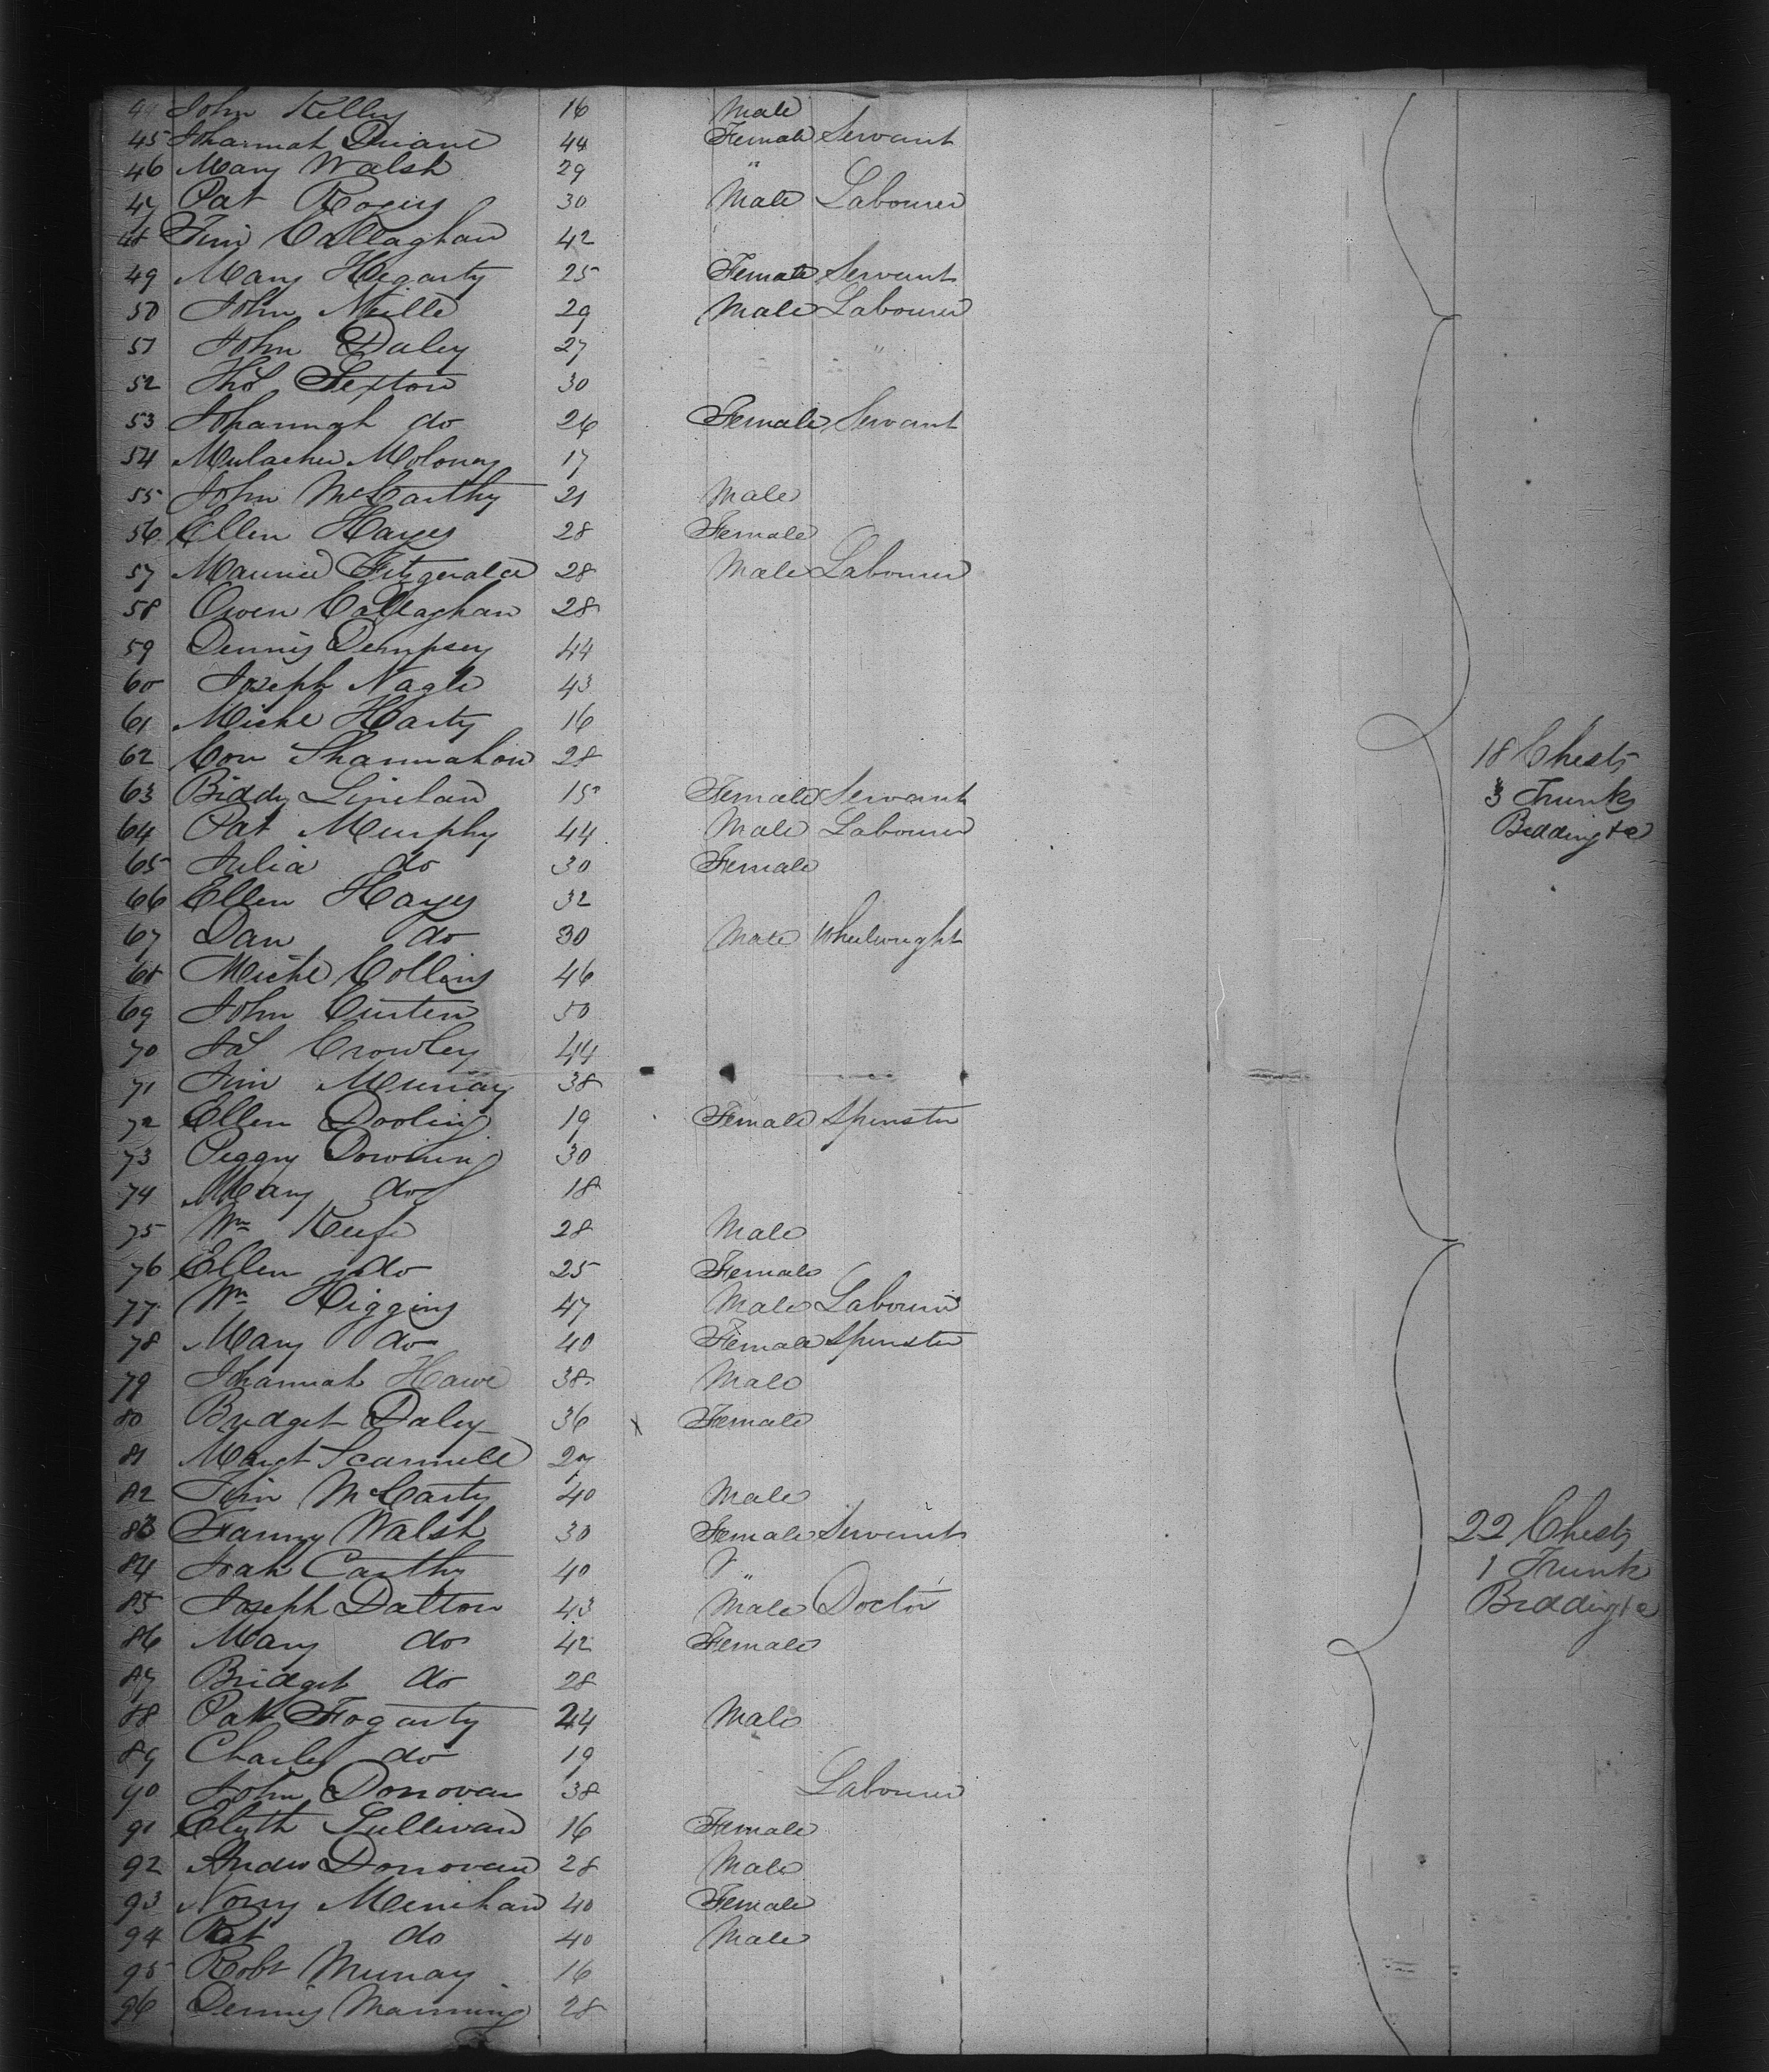 44 John Kelley 16 Male
45 Johannah Duane 44 Female Servant
46 Mary Walsh 29 "
47 Pat Rogers 30 Male Labourer
48 Tim Callaghan 42
49 Mary Hegarty 25 Female Servant
50 John Neille 29 Male Labourer
51 John Daley 27 "
52 Thos Sexton 30
53 Johannah do 26 Female Servant
54 Mulachie Moloney 17
55 John McCarthy 21 Male
56 Ellen Hayes 28 Female
57 Maurice Fitzgerald 28 Male Labourer
58 Owen Callaghan 28
59 Dennis Dempsey 44
60 Joseph Nagle 43
61 Michl Harty 16
62 Con Shannahan 28 18 Chests
63 Biddy Linehan 15 Female Servant 3 Trunks
64 Pat Murphy 44 Male Labourer Bedding &c
65 Julia do 30 Female
66 Ellen Hayes 32
67 Dan do 30 Male Wheelwright
68 Michl Collins 46
69 John Curten 50
70 Jas Crowley 44
71 Jim Murray 38
72 Ellen Dooling 19 Female Spinster
73 Peggy Downing 30
74 Mary do 18
75 Wm Keefe 28 Male
76 Ellen do 25 Female
77 Wm Higgins 47 Male Labourer
78 Mary do 40 Female Spinster
79 Johannah Hawe 38 Male
80 Bridget Daley 36 Female
81 Margt Scannell 27
82 Tim McCarty 40 Male
83 Fanny Walsh 30 Female Servant 22 Chests
84 Carthy 40 " 1 Trunk
85 Joseph Dalton 43 Male Doctor Bedding &c
86 Mary do 42 Female
87 Bridget do 28
88 Pat Fogarty 24 Male
89 Charles do 19
90 John Donovan 38 Labourer
91 Elizth Sullivan 16 Female
92 Andw Donovan 28 Male
93 Norry Menihan 40 Female
94 Pat do 40 Male
95 Robt Murray 16
96 Dennis Manning 28